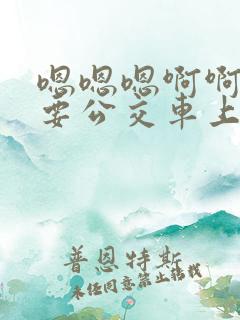 嗯嗯嗯啊啊
要公交車上
普恩特斯
未经同意禁止转载